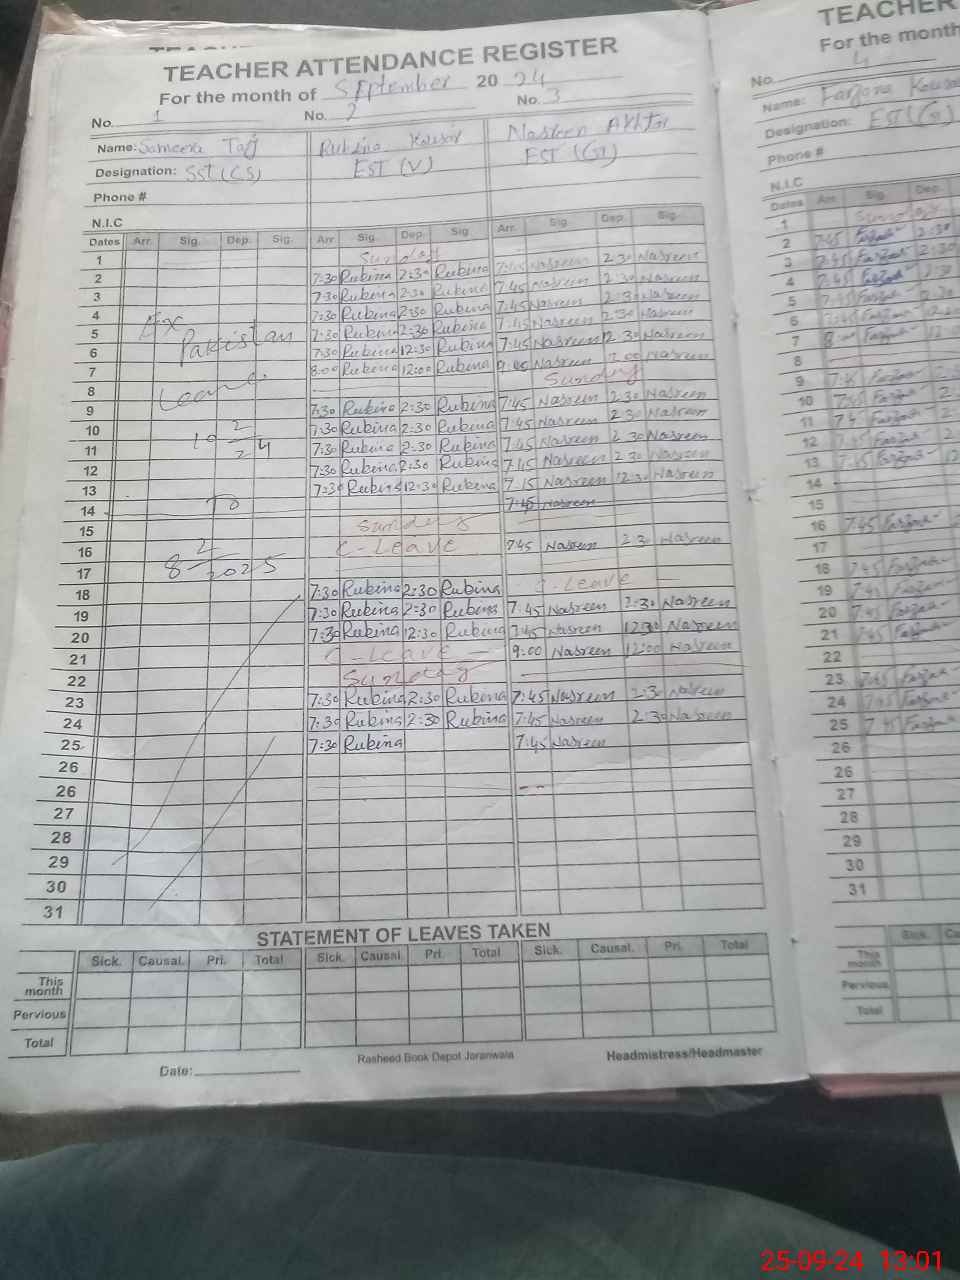 TEACHER ATTENDANCE REGISTER
For the month of September 20 24
No. 1 No. 2 No. 3
Name: Sameera Taj Rubina Kousar Nasreen Akhtar
Designation: SSt (CS) EST (V) EST (G)
Phone #
N.I.C
Dates Arr. Sig. Dep. Sig. Arr. Sig. Dep. Sig. Arr. Sig. Dep. Sig.
1 Sunday
2 7:30 Rubina 2:30 Rubina 7:45 Nasreen 2:30 Nasreen
3 7:30 Rubina 2:30 Rubina 7:45 Nasreen 2:30 Nasreen
4 Ex 7:30 Rubina 2:30 Rubina 7:45 Nasreen 2:30 Nasreen
5 Pakistan 7:30 Rubina 2:30 Rubina 7:45 Nasreen 2:30 Nasreen
6 7:30 Rubina 12:30 Rubina 7:45 Nasreen 12:30 Nasreen
7 Leave. 8:00 Rubina 12:00 Rubina Nasreen Nasreen
8 Sunday
9 7:30 Rubina 2:30 Rubina 7:45 Nasreen 2:30 Nasreen
10 7:30 Rubina 2:30 Rubina 7:45 Nasreen 2:30 Nasreen
11 7:30 Rubina 2:30 Rubina 7:45 Nasreen 2:30 Nasreen
12 7:30 Rubina 2:30 Rubina 7:45 Nasreen 2:30 Nasreen
13 7:30 Rubina 12:30 Rubina 7:45 Nasreen 12:30 Nasreen
14 To 7:45 Nasreen
15 Sunday
16 C-Leave 7:45 Nasreen 2:30 Nasreen
17
18 7:30 Rubina 2:30 Rubina C-Leave
19 7:30 Rubina 2:30 Rubina 7:45 Nasreen 2:30 Nasreen
20 7:30 Rubina 12:30 Rubina 7:45 Nasreen 12:30 Nasreen
21 C-Leave 9:00 Nasreen 12:00 Nasreen
22 Sunday
23 7:30 Rubina 2:30 Rubina 7:45 Nasreen 2:30 Nasreen
24 7:30 Rubina 2:30 Rubina 7:45 Nasreen 2:30 Nasreen
25 7:30 Rubina 7:45 Nasreen
26
26
27
28
29
30
31
STATEMENT OF LEAVES TAKEN
Sick. Causal. Pri. Total Sick. Causal. Pri. Total Sick. Causal. Pri. Total
This month
Pervious
Total
Date:
Rasheed Book Depot Jaranwala
Headmistress/Headmaster
TEACHER
For the month
No. 4
Name: Farzana
Designation: EST (G)
Phone #
N.I.C
Dates Arr. Sig. Dep.
1 Sunday
2 7:45 Farzana 2:30
3 7:45 Farzana 2:30
4 7:45 Farzana 2:30
5 7:45 Farzana
6 7:45 Farzana
7 Farzana
8
9 7:45 Farzana
10 7:45 Farzana
11 Farzana
12 7:45 Farzana
13 7:45 Farzana
14
15
16 7:45 Farzana
17
18 7:45 Farzana
19 7:45 Farzana
20 7:45 Farzana
21 7:45 Farzana
22
23 7:45 Farzana
24 7:45 Farzana
25 7:45 Farzana
26
26
27
28
29
30
31
Sick.
This month
Pervious
Total
25-09-24 13:01